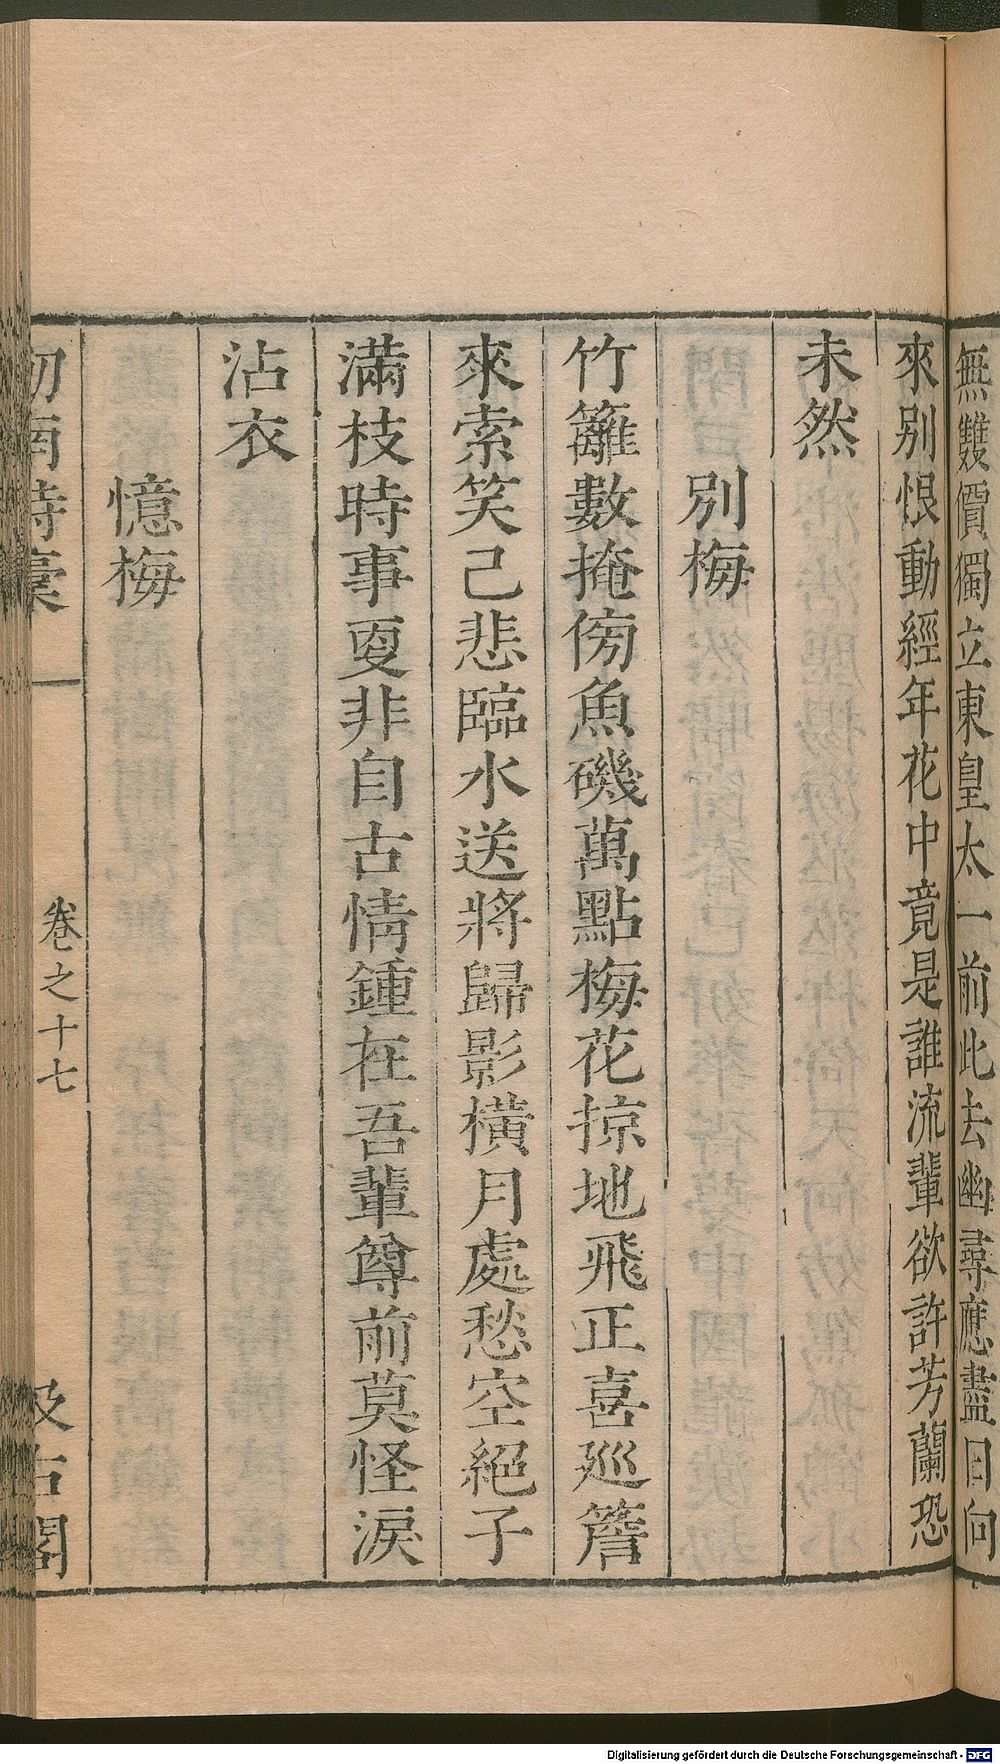 無雙價獨立東皇太一前此去幽尋應盡日向
來別恨動經年花中竟是誰流輩欲許芳蘭恐
未然
別梅
竹籬數掩傍魚磯萬點梅花掠地飛正喜廵簷
來索笑己悲臨水送將歸影橫月處愁空絕子
滿枝時事叓非自古情鍾在吾輩尊前莫怪淚
沾衣
憶梅
劒南詩稾
卷之十七
汲古閣
Digitalisierung gefördert durch die Deutsche Forschungsgemeinschaft - DFG